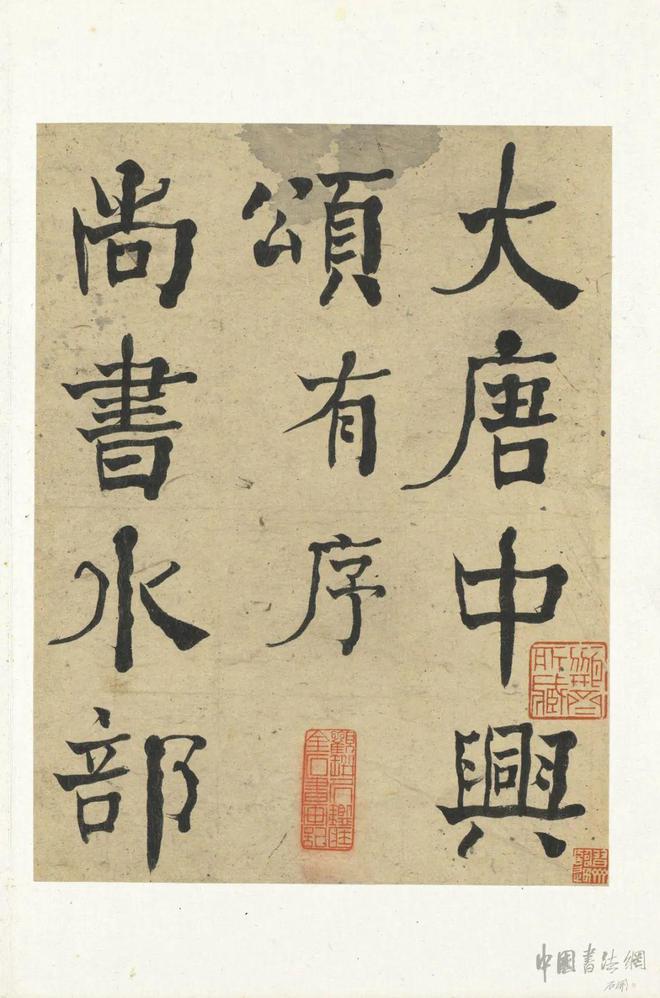 大唐中興
頌有序
尚書水部
中國書法網